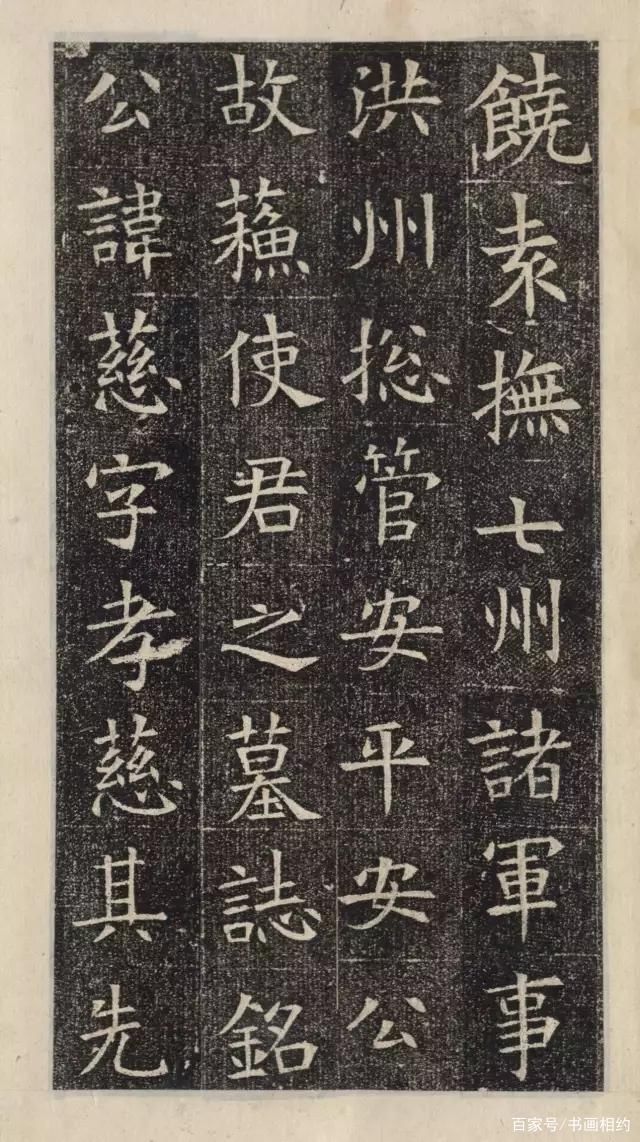 饒袁撫七州諸軍事
洪州捴管安平安公
故蘓使君之墓誌銘
公諱慈字孝慈其先
百家号/书画相约